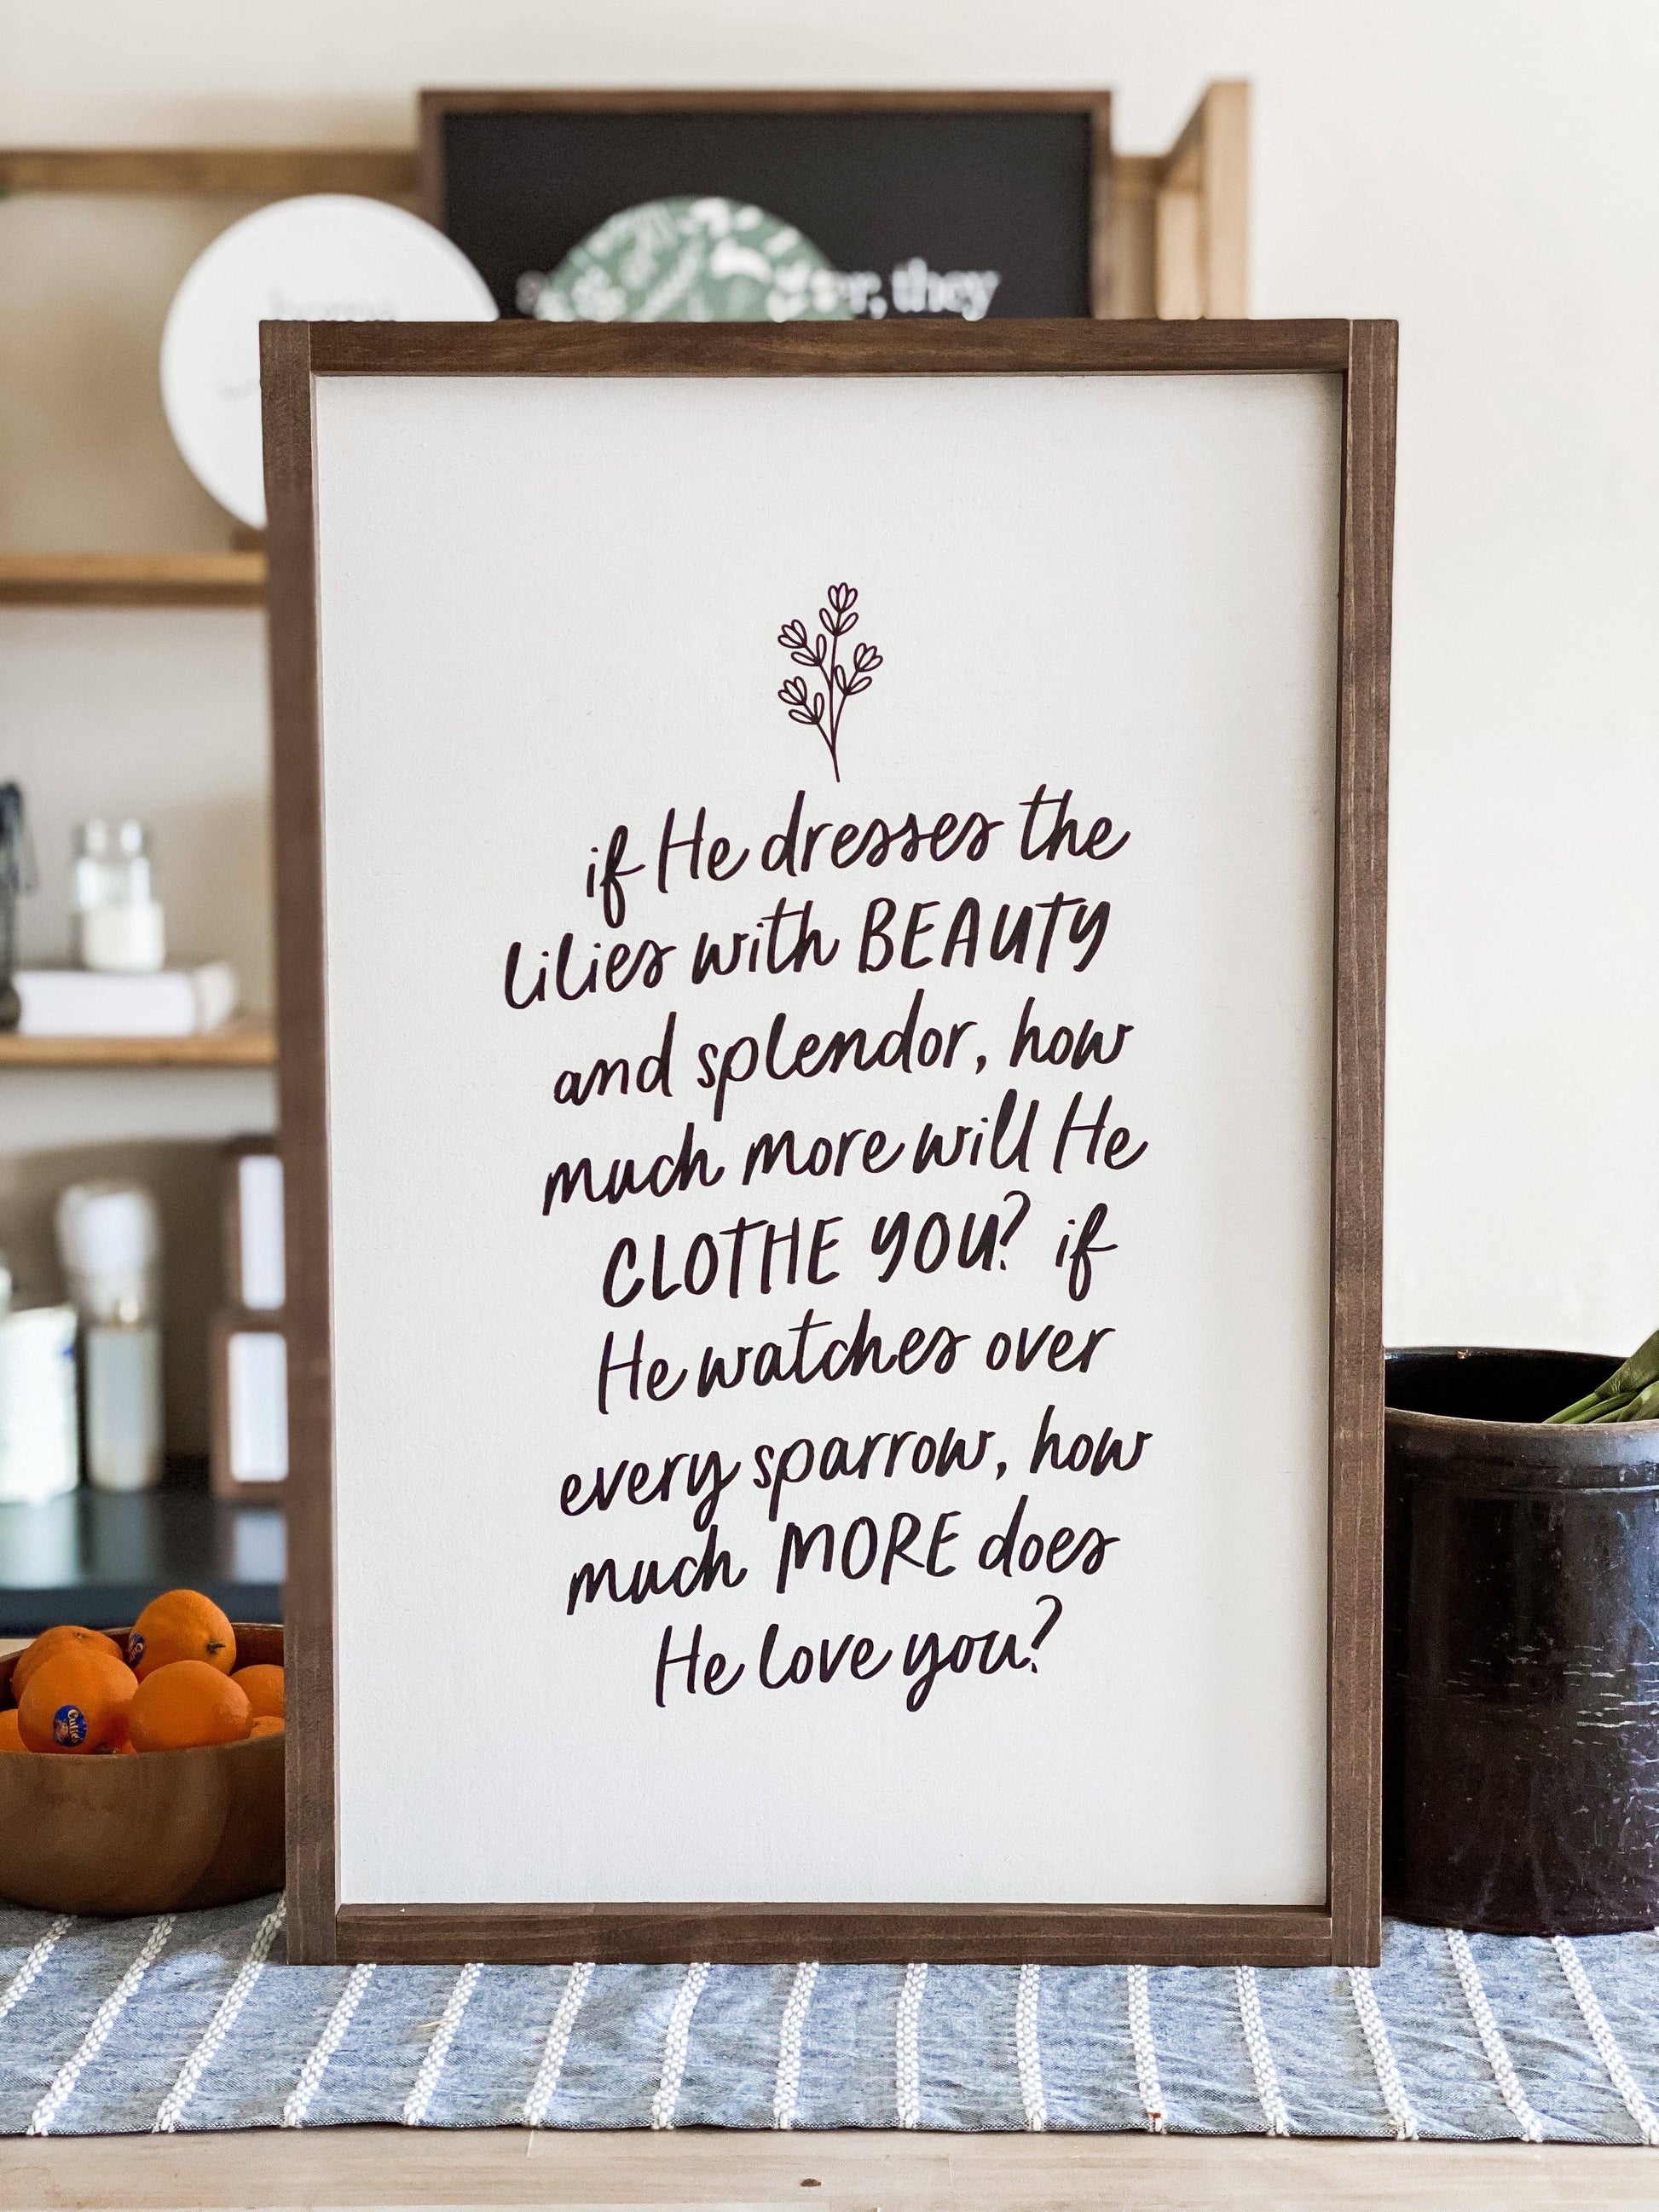 er, they
if He dresses the
lilies with BEAUTY
and splendor, how
much more will He
CLOTHE YOU? if
He watches over
every sparrow, how
much MORE does
He love you?
Cuties